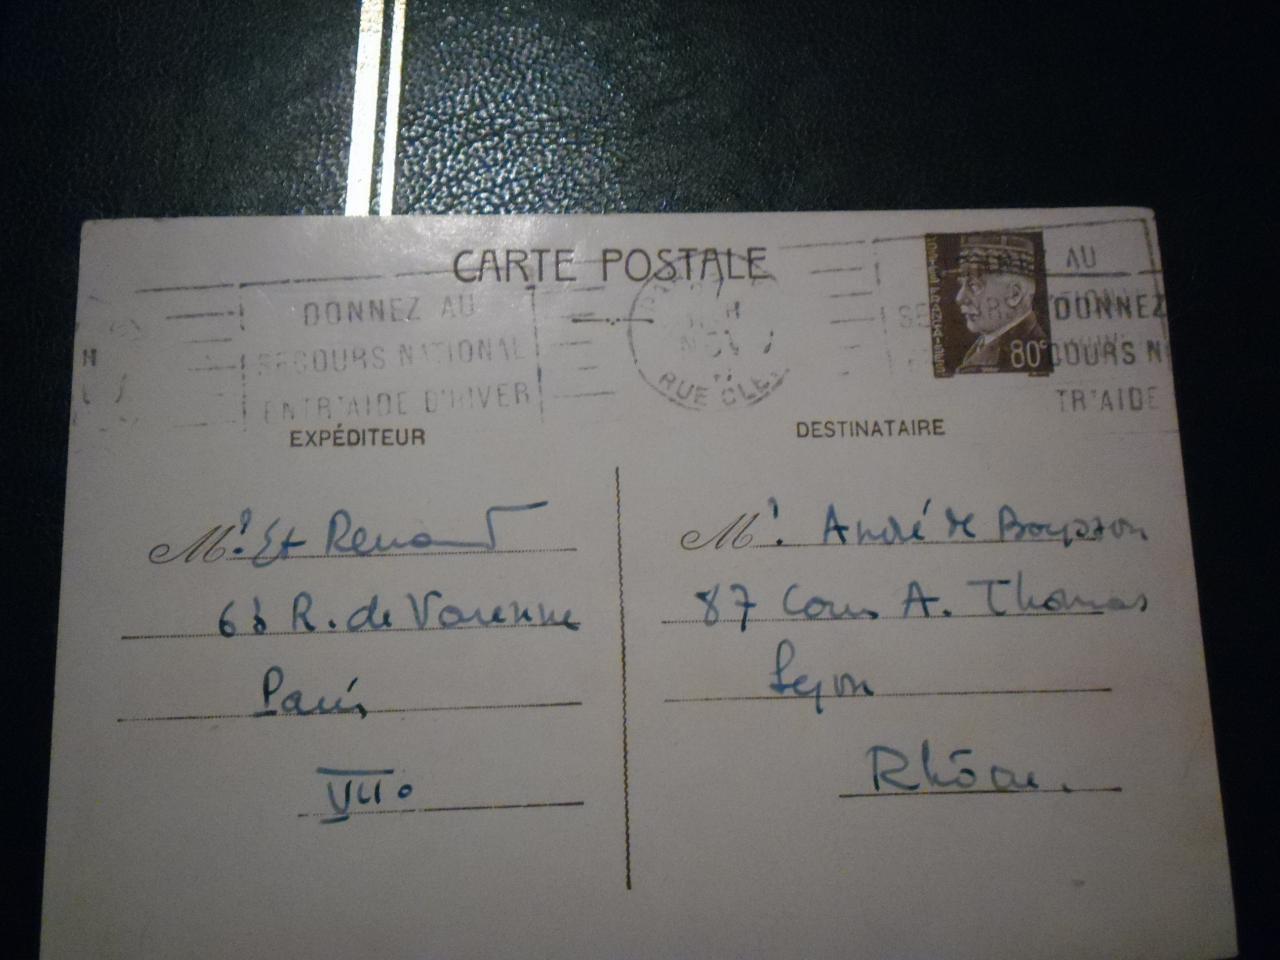 CARTE POSTALE
DONNEZ AU
SECOURS NATIONAL
ENTR'AIDE D'HIVER
RUE CLE
80c
AU
DONNEZ
COURS N
TR'AIDE
EXPÉDITEUR
DESTINATAIRE
Mr. Et Renard
68 R. de Varenne
Paris
VII°
Mr. André de Boysson
87 Cours A. Thomas
Lyon
Rhône.